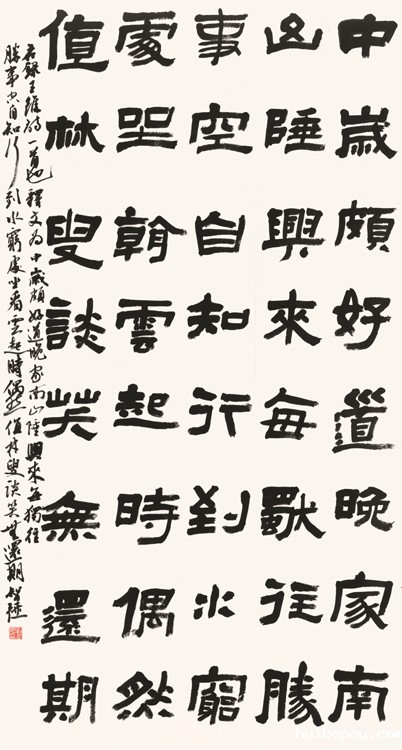 中歲頗好道晚家南
山陲興來每獨往勝
事空自知行到水窮
處坐看雲起時偶然
值林叟談笑無還期
右錄王維詩一首也釋文为中歲頗好道晚家南山陲興來每獨往
勝事空自知行到水窮處坐看雲起時偶然值林叟談笑無還期